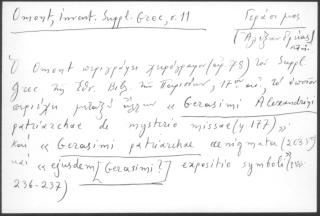 Omont, invent. Suppl. Grec, σ. 11
Γεράσιμος
[Ἀλεξανδρείας]
Ὁ Omont περιγράφει χειρόγραφον (ἀρ. 78) τοῦ Suppl.
grec τῆς Ἐθν. Βιβ. τῶν Παρισίων, 17ου αἰ., τὸ ὁποῖον
περιέχει μεταξὺ ἄλλων « Gerasimi Alexandriae
patriarchae de mysterio missae (φ 177) »,
καὶ « Gerasimi patriarchae aenigmata (203
καὶ « ejusdem [Gerasimi?] expositio symboli »
236-237)